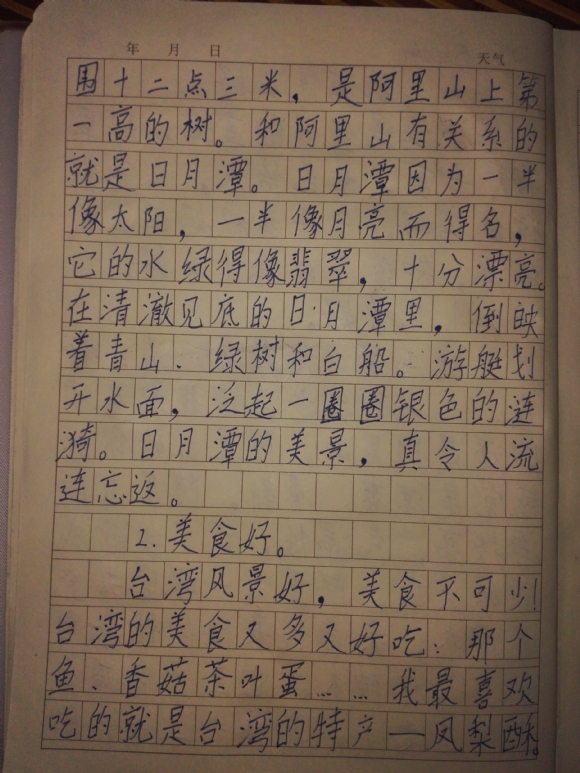 年 月 日 天气
围十二点三米，是阿里山上第
一高的树。和阿里山有关系的
就是日月潭。日月潭因为一半
像太阳，一半像月亮而得名，
它的水绿得像翡翠，十分漂亮。
在清澈见底的日月潭里，倒映
着青山、绿树和白船。游艇划
开水面，泛起一圈圈银色的涟
漪。日月潭的美景，真令人流
连忘返。
2.美食好。
台湾风景好，美食不可少！
台湾的美食又多又好吃：那个
鱼、香菇茶叶蛋……我最喜欢
吃的就是台湾的特产—凤梨酥。